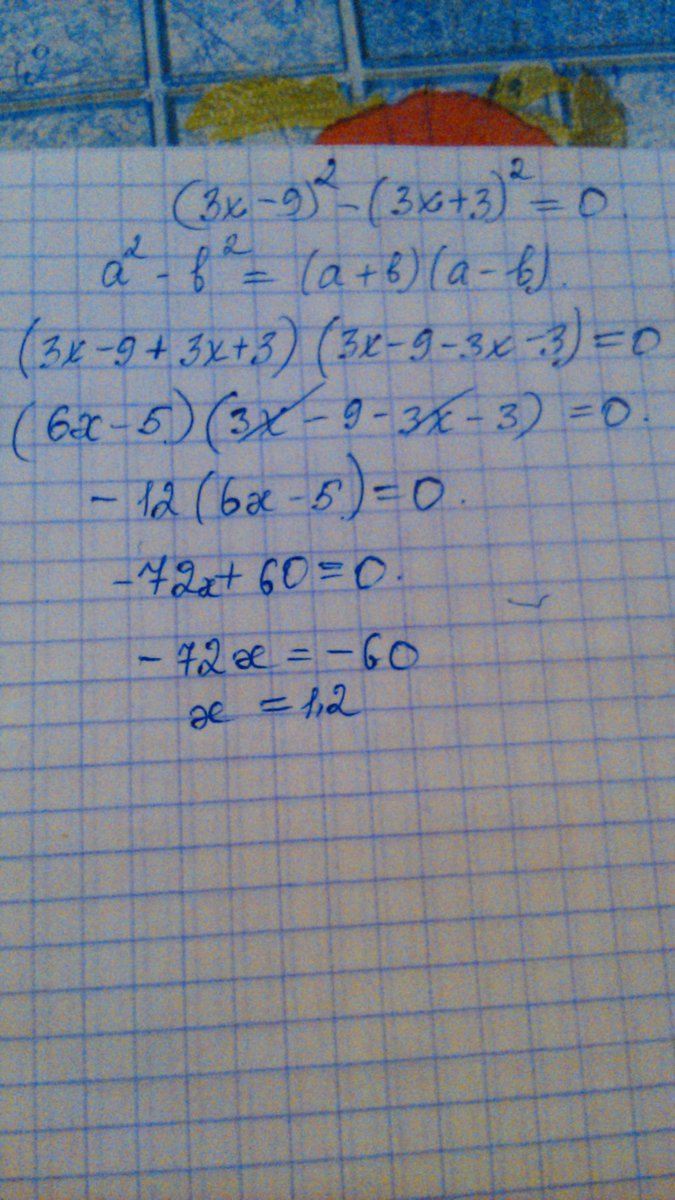 (3x-9)² - (3x+3)² = 0.
a² - b² = (a+b)(a-b).
(3x-9+3x+3) (3x-9-3x-3) = 0
(6x-5) (3x-9-3x-3) = 0.
-12(6x-5) = 0.
-72x + 60 = 0.
-72x = -60
x = 1,2